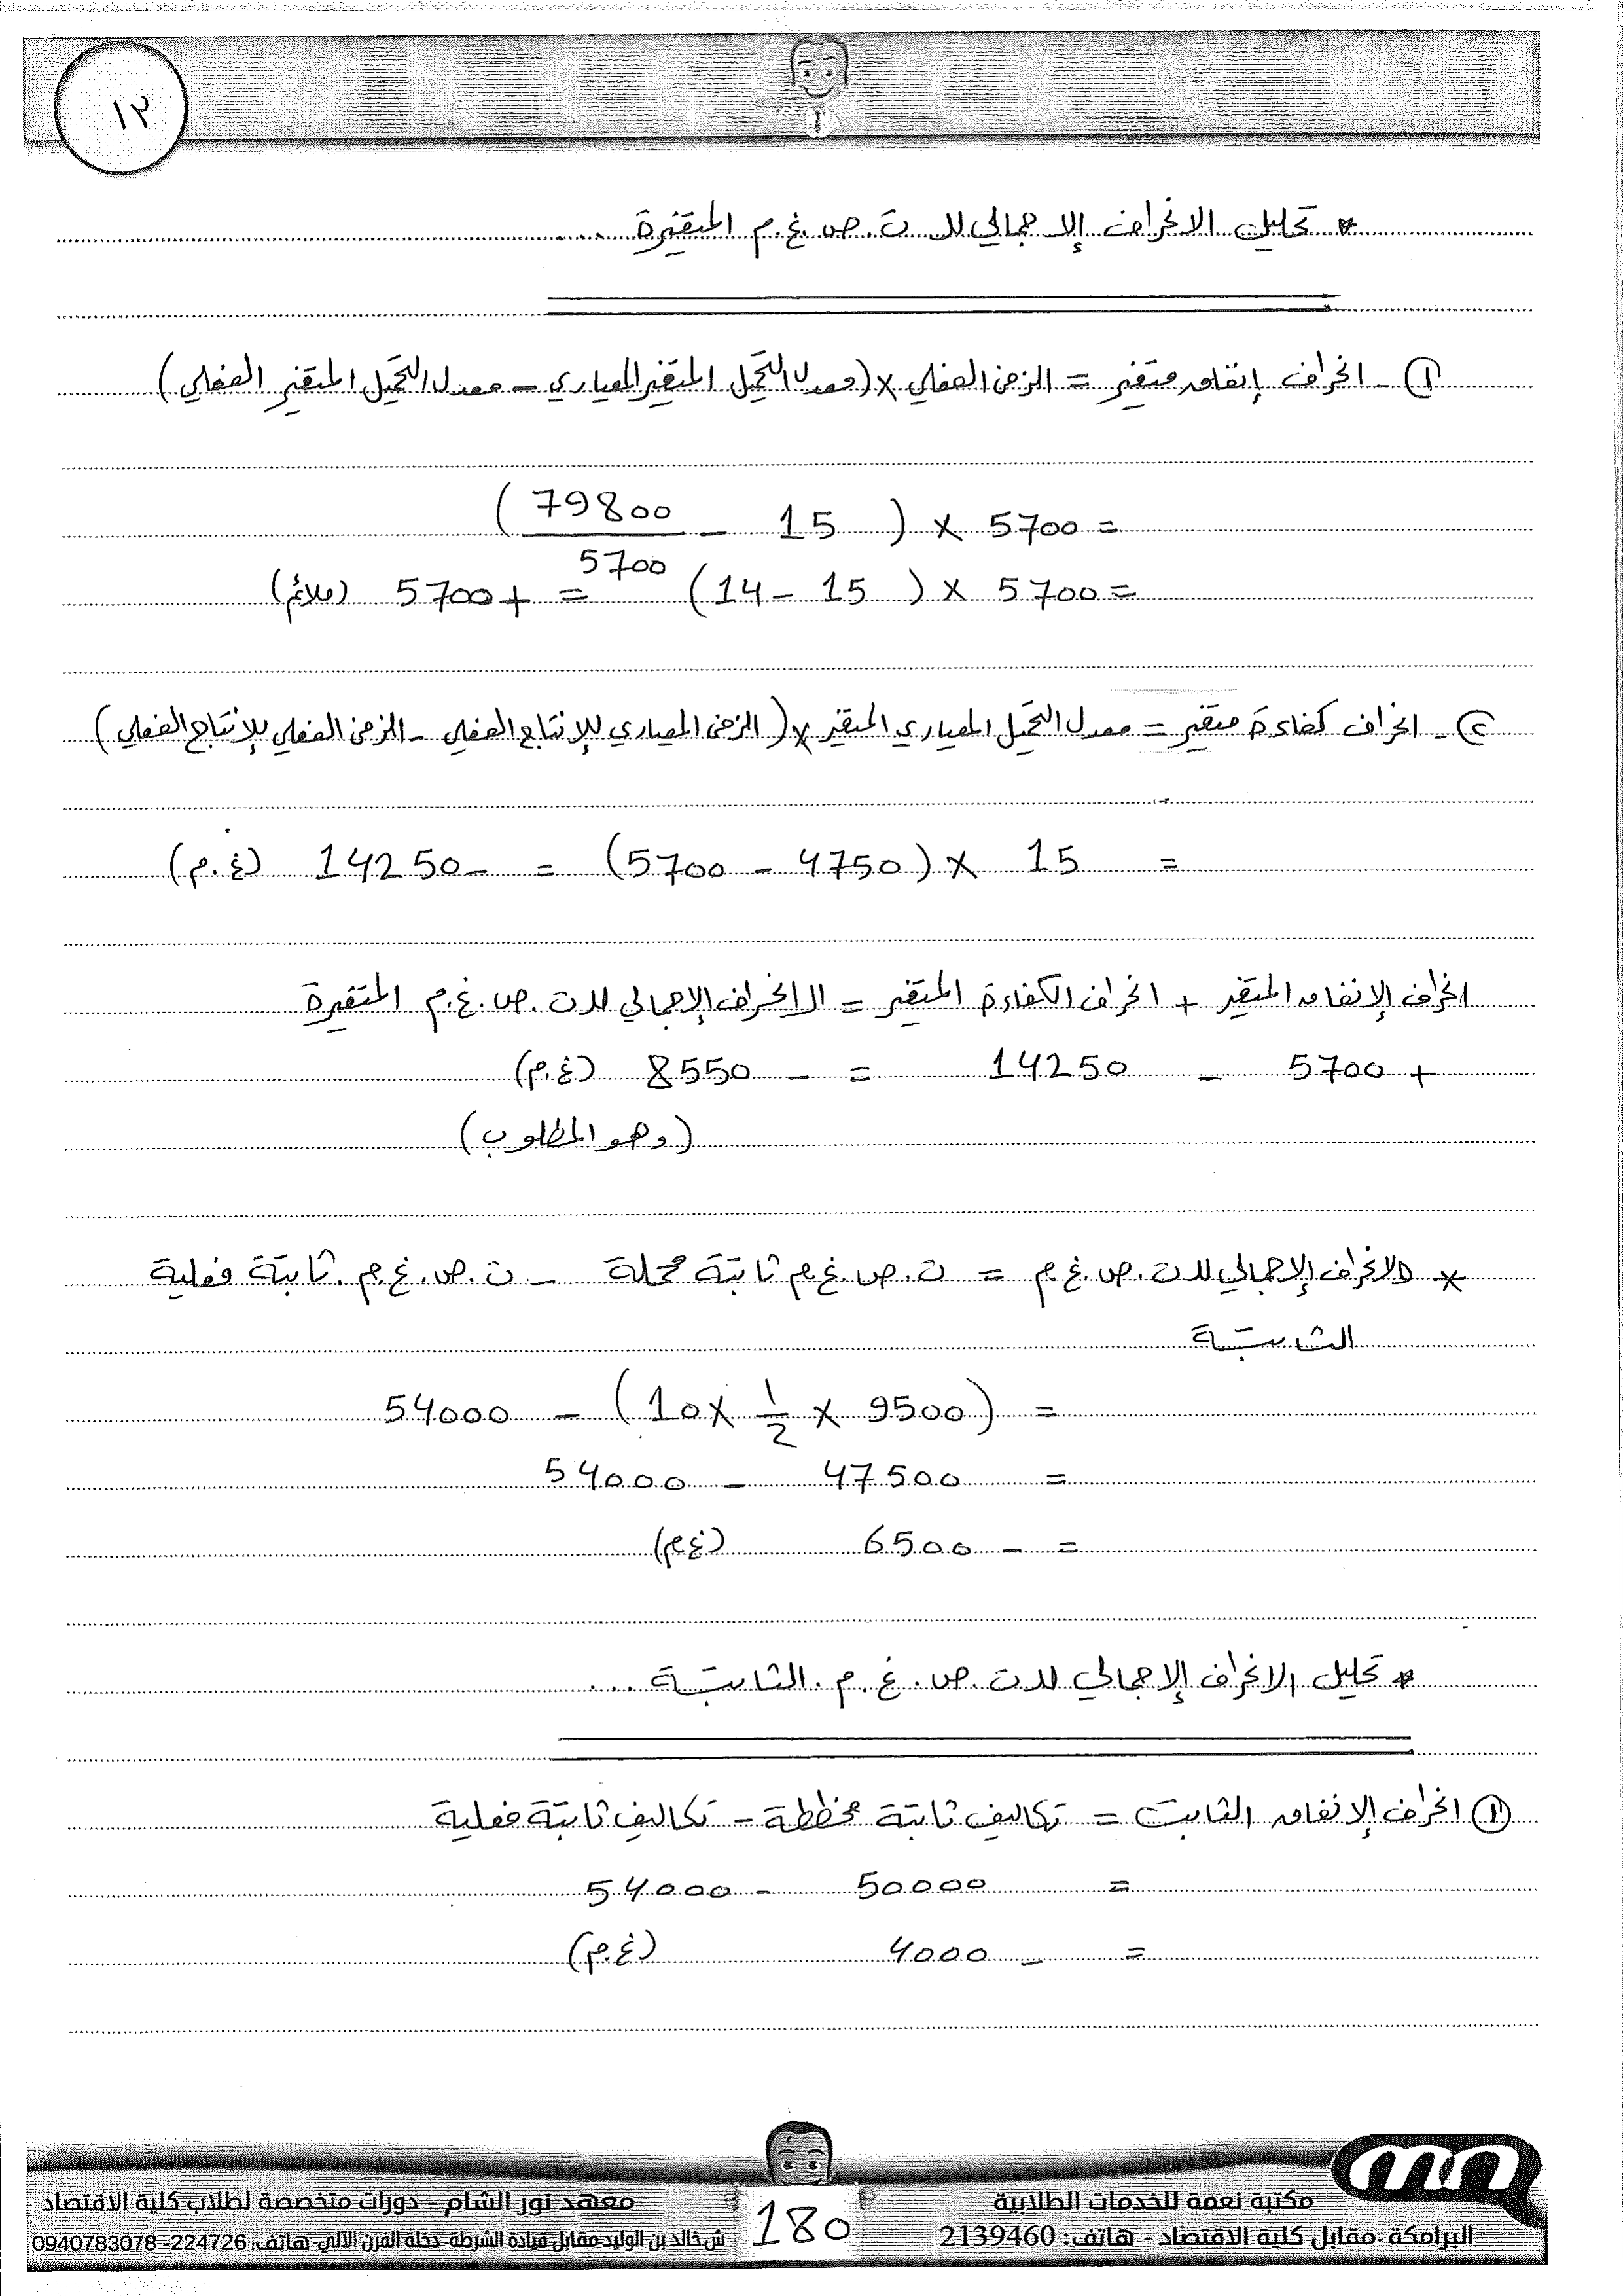 ١٢
* تحليل الانحراف الإجمالي للـ ت.ص.غ.م المتغيرة ...
① - انحراف إنفاق متغير = الزمن الفعلي × (معدل التحميل المتغير المعياري - معدل التحميل المتغير الفعلي)
= 5700 × ( 15 - 79800 / 5700 )
= 5700 × ( 15 - 14 ) = + 5700 (ملائم)
② - انحراف كفاءة متغير = معدل التحميل المعياري المتغير × (الزمن المعياري للإنتاج الفعلي - الزمن الفعلي للإنتاج الفعلي)
= 15 × (4750 - 5700) = - 14250 (غ.م)
انحراف الإنفاق المتغير + انحراف الكفاءة المتغير = الانحراف الإجمالي للـ ت.ص.غ.م المتغيرة
+ 5700 - 14250 = - 8550 (غ.م)
(وهو المطلوب)
* الانحراف الإجمالي للـ ت.ص.غ.م = ت.ص.غ.م ثابتة محملة - ت.ص.غ.م. ثابتة فعلية
الثابتة
= (9500 × 1/2 × 10) - 54000
= 47500 - 54000
= - 6500 (غ.م)
* تحليل الانحراف الإجمالي للـ ت.ص.غ.م. الثابتة ...
① انحراف الإنفاق الثابت = تكاليف ثابتة مخططة - تكاليف ثابتة فعلية
= 50000 - 54000
= - 4000 (غ.م)
مكتبة نعمة للخدمات الطلابية
البرامكة - مقابل كلية الاقتصاد - هاتف: 2139460
180
معهد نور الشام - دورات متخصصة لطلاب كلية الاقتصاد
ش خالد بن الوليد - مقابل قيادة الشرطة - دخلة الفرن الآلي - هاتف: 224726 - 0940783078